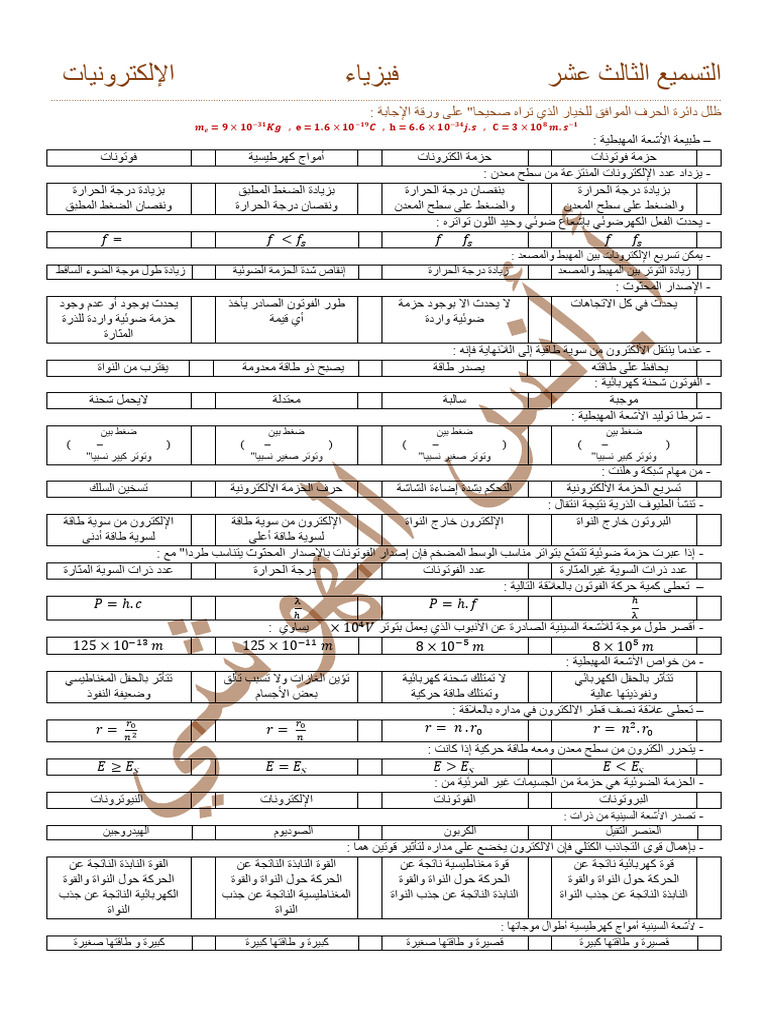 التسميع الثالث عشر فيزياء الإلكترونيات
ظلل دائرة الحرف الموافق للخيار الذي تراه صحيحا" على ورقة الإجابة :
mₑ = 9 × 10⁻³¹Kg , e = 1.6 × 10⁻¹⁹C , h = 6.6 × 10⁻³⁴j.s , C = 3 × 10⁸ m.s⁻¹
– طبيعة الأشعة المهبطية :
حزمة فوتونات حزمة الكترونات أمواج كهرطيسية فوتونات
- يزداد عدد الإلكترونات المنتزعة من سطح معدن :
بزيادة درجة الحرارة بنقصان درجة الحرارة بزيادة الضغط المطبق بزيادة درجة الحرارة
والضغط على سطح المعدن والضغط على سطح المعدن ونقصان درجة الحرارة ونقصان الضغط المطبق
- يحدث الفعل الكهرضوئي بإشعاع ضوئي وحيد اللون تواتره :
f fₛ f fₛ f < fₛ f =
- يمكن تسريع الإلكترونات بين المهبط والمصعد :
زيادة التوتر بين المهبط والمصعد زيادة درجة الحرارة إنقاص شدة الحزمة الضوئية زيادة طول موجة الضوء الساقط
- الإصدار المحثوث :
يحدث في كل الاتجاهات لا يحدث الا بوجود حزمة طور الفوتون الصادر يأخذ يحدث بوجود أو عدم وجود
ضوئية واردة أي قيمة حزمة ضوئية واردة للذرة
المثارة
- عندما ينتقل الالكترون من سوية طاقية إلى اللانهاية فإنه :
يحافظ على طاقته يصدر طاقة يصبح ذو طاقة معدومة يقترب من النواة
- الفوتون شحنة كهربائية :
موجبة سالبة معتدلة لايحمل شحنة
- شرطا توليد الأشعة المهبطية :
ضغط بين ضغط بين ضغط بين ضغط بين
( – ) ( – ) ( – ) ( – )
وتوتر كبير نسبيا" وتوتر صغير نسبيا" وتوتر صغير نسبيا" وتوتر كبير نسبيا"
- من مهام شبكة وهلنت :
تسريع الحزمة الالكترونية التحكم بشدة إضاءة الشاشة حرف الحزمة الالكترونية تسخين السلك
- تنشأ الطيوف الذرية نتيجة انتقال :
البروتون خارج النواة الإلكترون خارج النواة الإلكترون من سوية طاقة الإلكترون من سوية طاقة
لسوية طاقة أعلى لسوية طاقة أدنى
- إذا عبرت حزمة ضوئية تتمتع بتواتر مناسب الوسط المضخم فإن إصدار الفوتونات بالإصدار المحثوث يتناسب طردا" مع :
عدد ذرات السوية غير المثارة عدد الفوتونات درجة الحرارة عدد ذرات السوية المثارة
– تعطى كمية حركة الفوتون بالعلاقة التالية :
h/λ P = h.f λ/h P = h.c
- أقصر طول موجة للأشعة السينية الصادرة عن الأنبوب الذي يعمل بتوتر × 10⁴V يساوي :
8 × 10⁵ m 8 × 10⁻⁵ m 125 × 10⁻¹¹ m 125 × 10⁻¹³ m
- من خواص الأشعة المهبطية :
تتأثر بالحقل الكهربائي لا تمتلك شحنة كهربائية تؤين الغازات ولا تسبب تألق تتأثر بالحقل المغناطيسي
ونفوذيتها عالية وتمتلك طاقة حركية بعض الأجسام وضعيفة النفوذ
– تعطى علاقة نصف قطر الالكترون في مداره بالعلاقة :
r = n².r₀ r = n.r₀ r = r₀/n r = r₀/n²
- يتحرر الكترون من سطح معدن ومعه طاقة حركية إذا كانت :
E < Eₛ E > Eₛ E = Eₛ E ≥ Eₛ
- الحزمة الضوئية هي حزمة من الجسيمات غير المرئية من :
البروتونات الفوتونات الإلكترونات النيوترونات
- تصدر الأشعة السينية من ذرات :
العنصر الثقيل الكربون الصوديوم الهيدروجين
- بإهمال قوى التجاذب الكتلي فإن الالكترون يخضع على مداره لتأثير قوتين هما :
قوة كهربائية ناتجة عن قوة مغناطيسية ناتجة عن القوة النابذة الناتجة عن القوة النابذة الناتجة عن
الحركة حول النواة والقوة الحركة حول النواة والقوة الحركة حول النواة والقوة الحركة حول النواة والقوة
النابذة الناتجة عن جذب النواة النابذة الناتجة عن جذب النواة المغناطيسية الناتجة عن جذب الكهربائية الناتجة عن جذب
النواة النواة
- لأشعة السينية أمواج كهرطيسية أطوال موجاتها :
قصيرة و طاقتها كبيرة قصيرة و طاقتها صغيرة كبيرة و طاقتها كبيرة كبيرة و طاقتها صغيرة
أ. أنس الهوشي